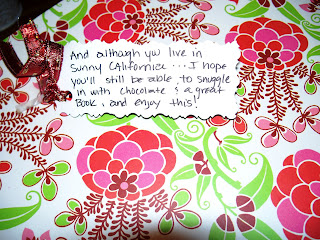 And although you live in
Sunny California ... I hope
you'll still be able to snuggle
in with chocolate & a great
Book, and enjoy this!